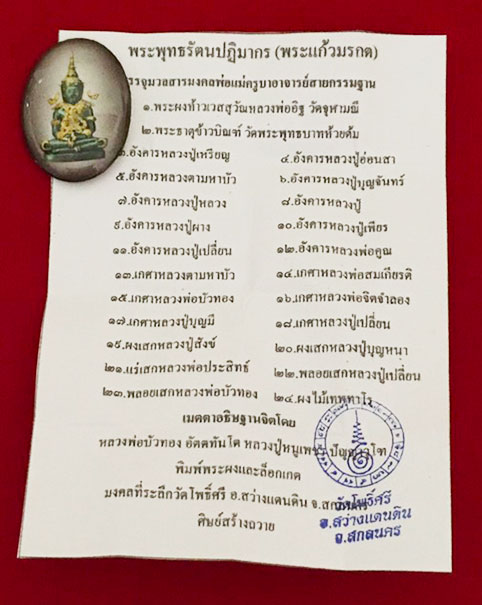 พระพุทธรัตนปฏิมากร (พระแก้วมรกต)
รรจุมวลสารมงคลพ่อแม่ครูบาอาจารย์สายกรรมฐาน
๑.พระผงท้าวเวสสุวัณหลวงพ่ออิฐ วัดจุฬามณี
๒.พระธาตุข้าวบิณฑ์ วัดพระพุทธบาทห้วยต้ม
๓.อังคารหลวงปู่เหรียญ ๔.อังคารหลวงปู่อ่อนสา
๕.อังคารหลวงตามหาบัว ๖.อังคารหลวงปู่บุญจันทร์
๗.อังคารหลวงปู่หลวง ๘.อังคารหลวงปู่
๙.อังคารหลวงปู่ผาง ๑๐.อังคารหลวงปู่เพียร
๑๑.อังคารหลวงปู่เปลี่ยน ๑๒.อังคารหลวงพ่อคูณ
๑๓.เกศาหลวงตามหาบัว ๑๔.เกศาหลวงพ่อสมเกียรติ
๑๕.เกศาหลวงพ่อบัวทอง ๑๖.เกศาหลวงพ่อจิตจำลอง
๑๗.เกศาหลวงปู่บุญมี ๑๘.เกศาหลวงปู่เปลี่ยน
๑๙.ผงเสกหลวงปู่สังข์ ๒๐.ผงเสกหลวงปู่บุญหนา
๒๑.แร่เสกหลวงพ่อประสิทธ์ ๒๒.พลอยเสกหลวงปู่เปลี่ยน
๒๓.พลอยเสกหลวงพ่อบัวทอง ๒๔.ผงไม้เทพทาโร
เมตตาอธิษฐานจิตโดย
หลวงพ่อบัวทอง อัตตทันโต หลวงปู่หนูเพชร
พิมพ์พระผงและล็อกเกต
มงคลที่ระลึกวัดโพธิ์ศรี อ.สว่างแดนดิน จ.สกลนคร
ศิษย์สร้างถวาย
วัดโพธิ์ศรี
อ.สว่างแดนดิน
จ.สกลนคร